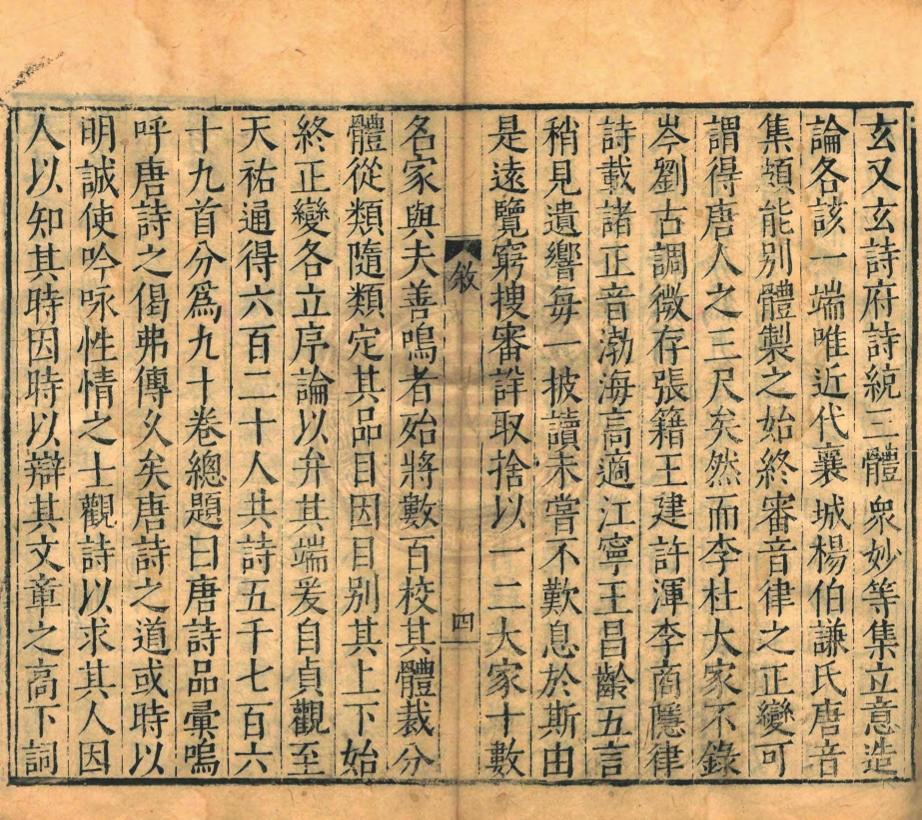 玄又玄詩府詩統三體衆妙等集立意造
論各該一端唯近代襄城楊伯謙氏唐音
集類能别體製之始終審音律之正變可
謂得唐人之三尺矣然而李杜大家不錄
岑劉古調微存張籍王建許渾李商隱律
詩載諸正音渤海高適江寧王昌齡五言
稍見遺響每一披讀未嘗不歎息於斯由
是遠覽窮搜審詳取捨以一二大家十數
敘
四
名家與夫善鳴者殆將數百校其體裁分
體從類隨類定其品目因目别其上下始
終正變各立序論以弁其端爰自貞觀至
天祐通得六百二十人共詩五千七百六
十九首分爲九十卷總題曰唐詩品彙嗚
呼唐詩之偈弗傳久矣唐詩之道或時以
明誠使吟咏性情之士觀詩以求其人因
人以知其時因時以辯其文章之高下詞